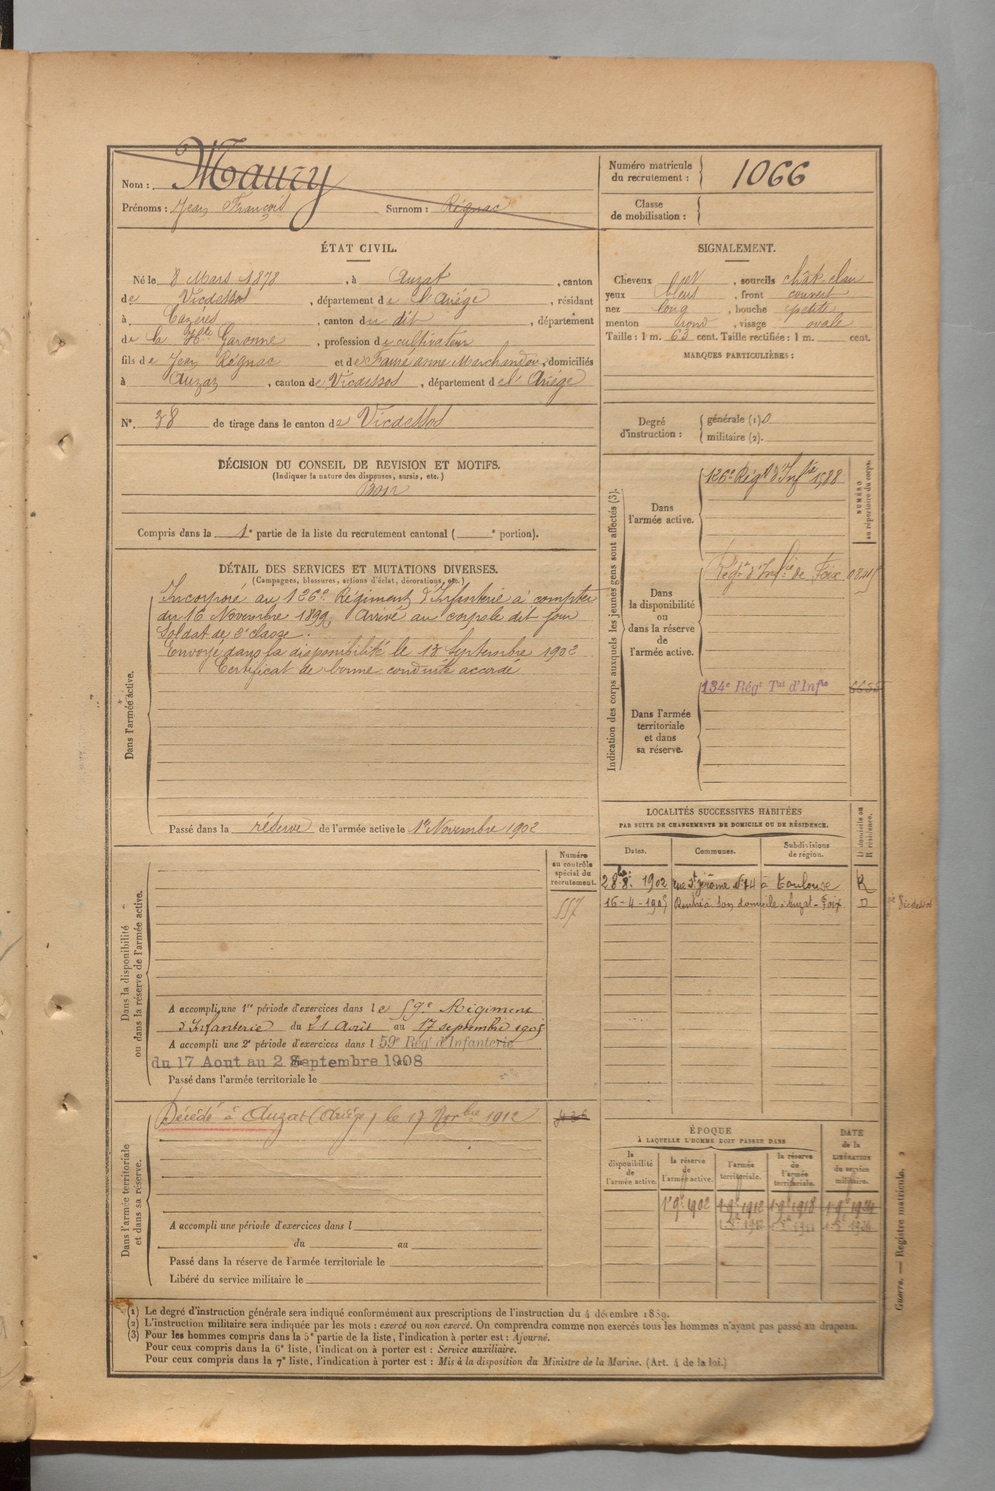 Nom : Maury
Prénoms : Jean François Surnom : Régnac
Numéro matricule du recrutement : 1066
Classe de mobilisation :
ÉTAT CIVIL.
Né le 8 Mars 1878, à Auzat, canton
de Vicdessos, département de l'Ariège, résidant
à Cazères, canton du dit, département
de la Hte Garonne, profession de cultivateur
fils de Jean Régnac et de Faure anne Marchandon, domiciliés
à Auzat, canton de Vicdessos, département de l'Ariège
N° 38 de tirage dans le canton de Vicdessos
SIGNALEMENT.
Cheveux, sourcils chât clair
yeux bleus, front couvert
nez long, bouche petite
menton rond, visage ovale
Taille : 1 m. 63 cent. Taille rectifiée : 1 m. cent.
MARQUES PARTICULIÈRES :
Degré d'instruction : générale (1) 0
militaire (2).
DÉCISION DU CONSEIL DE REVISION ET MOTIFS.
(Indiquer la nature des dispenses, sursis, etc.)
Bon
Compris dans la 1e partie de la liste du recrutement cantonal ( e portion).
DÉTAIL DES SERVICES ET MUTATIONS DIVERSES.
(Campagnes, blessures, actions d'éclat, décorations, etc.)
Dans l'armée active.
Incorporé au 126e Régiment d'Infanterie à compter
du 16 Novembre 1899. Arrivé au corps le dit jour
Soldat de 2e classe.
Envoyé dans la disponibilité le 18 Septembre 1902
Certificat de bonne conduite accordé
Passé dans la réserve de l'armée active le 1er Novembre 1902
Indication des corps auxquels les jeunes gens sont affectés (3).
NUMÉRO au répertoire du corps.
Dans l'armée active.
126e Régt d'Infie 1588
Dans la disponibilité ou dans la réserve de l'armée active.
Régt d'Infie de Foix
Dans l'armée territoriale et dans sa réserve.
134e Régt Tal d'Infie
LOCALITÉS SUCCESSIVES HABITÉES
PAR SUITE DE CHANGEMENTS DE DOMICILE OU DE RÉSIDENCE.
D domicile ou R résidence.
Dates. Communes. Subdivisions de région.
28 8bre 1902 rue St Jérôme N° 44 à Toulouse R
16-4-1905 Rentré à son domicile à Auzat - Foix D
Dans la disponibilité ou dans la réserve de l'armée active.
Numéro au contrôle spécial du recrutement.
557
A accompli une 1re période d'exercices dans le 59e Régiment
d'Infanterie du 21 Août au 17 septembre 1905
A accompli une 2e période d'exercices dans l 59e Rég' d'Infanterie
du 17 Aout au 2 Septembre 1908
Passé dans l'armée territoriale le
Dans l'armée territoriale et dans sa réserve.
Décédé à Auzat (Ariège) le 17 Novbre 1912
A accompli une période d'exercices dans l
du au
Passé dans la réserve de l'armée territoriale le
Libéré du service militaire le
ÉPOQUE
À LAQUELLE L'HOMME DOIT PASSER DANS
DATE de la LIBÉRATION du service militaire.
la disponibilité de l'armée active. la réserve de l'armée active. l'armée territoriale. la réserve de l'armée territoriale.
1er 9bre 1902
(1) Le degré d'instruction générale sera indiqué conformément aux prescriptions de l'instruction du 4 décembre 1889.
(2) L'instruction militaire sera indiquée par les mots : exercé ou non exercé. On comprendra comme non exercés tous les hommes n'ayant pas passé au drapeau.
(3) Pour les hommes compris dans la 5e partie de la liste, l'indication à porter est : Ajourné.
Pour ceux compris dans la 6e liste, l'indication à porter est : Service auxiliaire.
Pour ceux compris dans la 7e liste, l'indication à porter est : Mis à la disposition du Ministre de la Marine. (Art. 4 de la loi.)
Guerre. — Registre matricule.